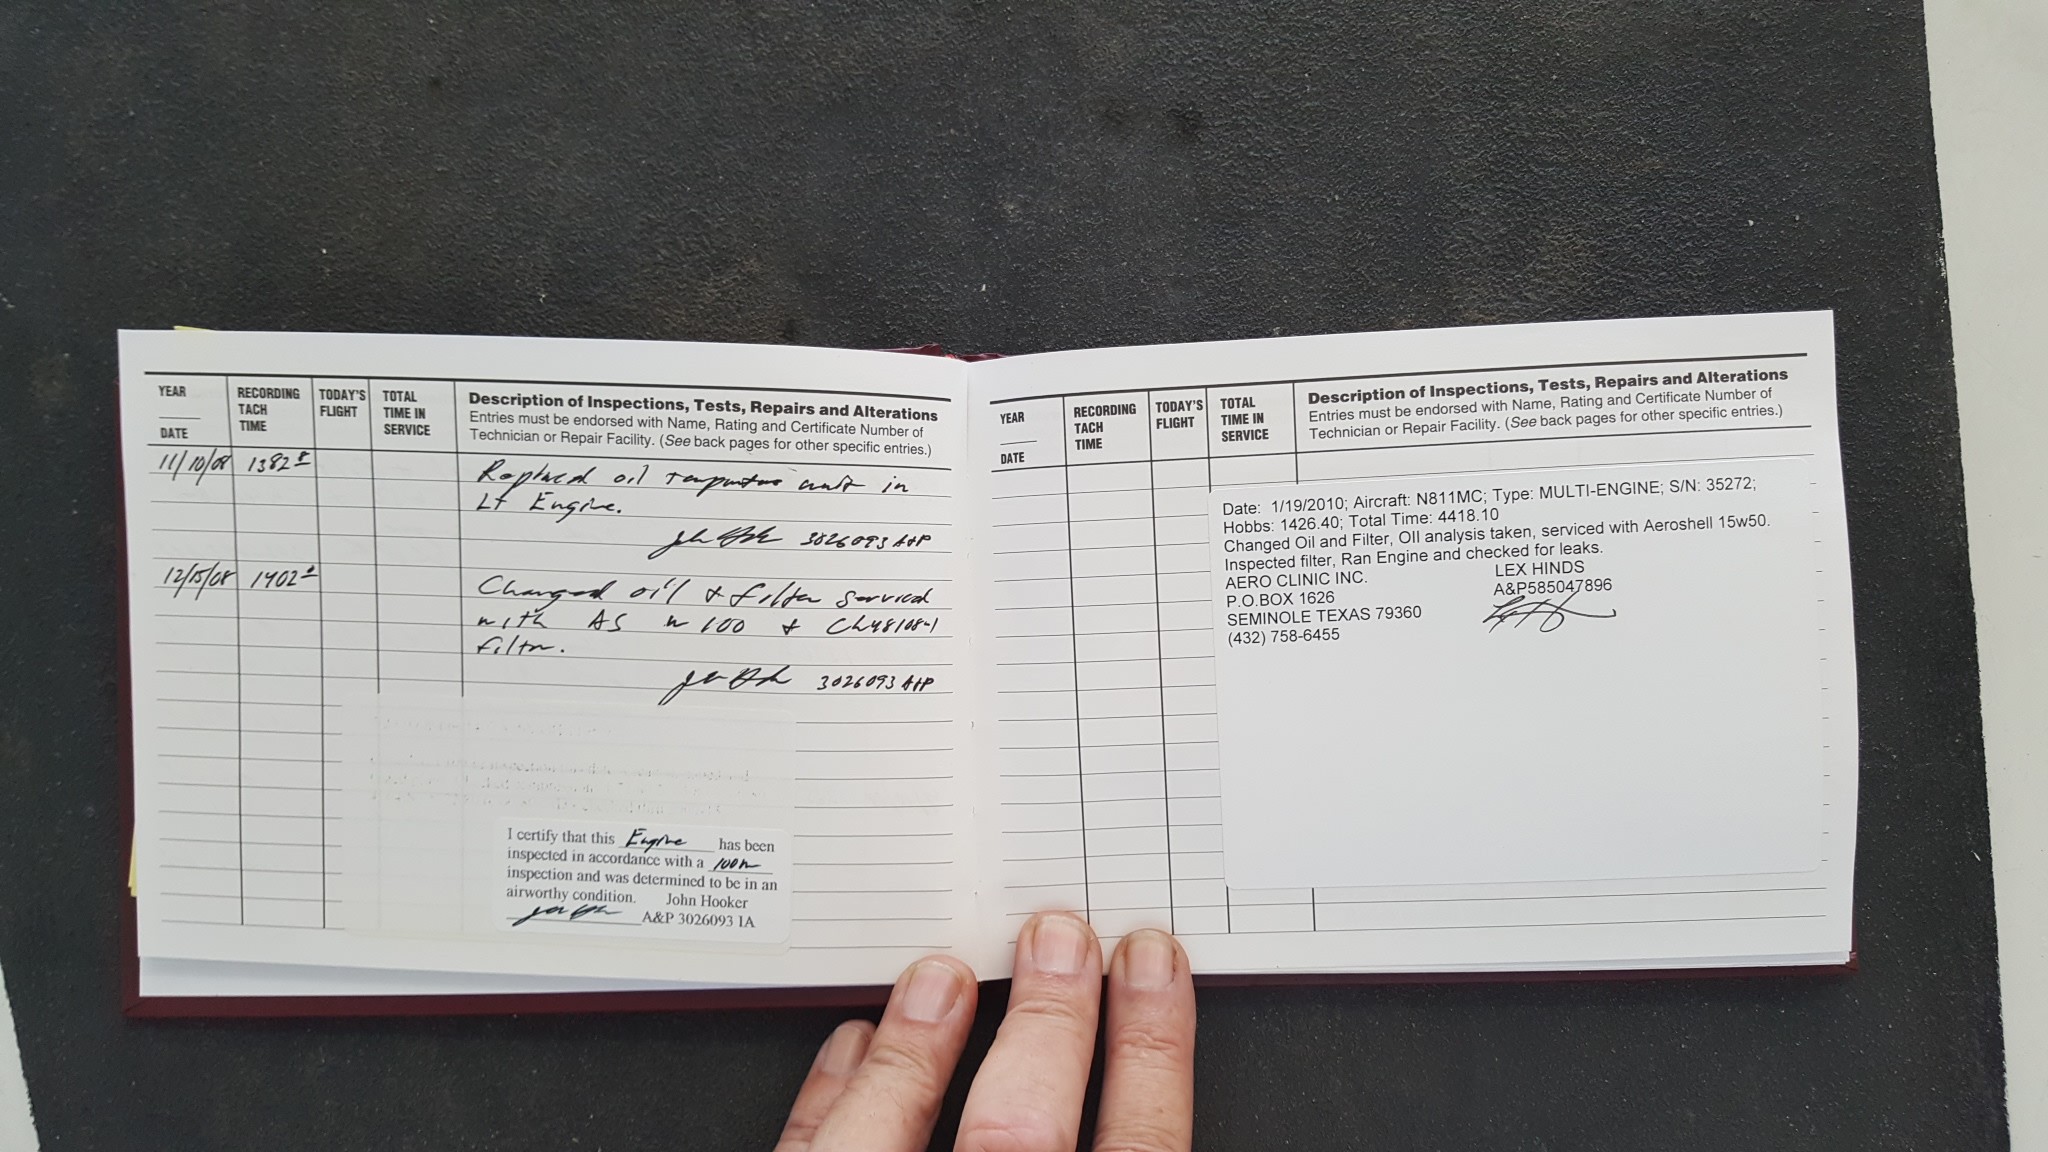 YEAR
DATE
RECORDING
TACH
TIME
TODAY'S
FLIGHT
TOTAL
TIME IN
SERVICE
Description of Inspections, Tests, Repairs and Alterations
Entries must be endorsed with Name, Rating and Certificate Number of
Technician or Repair Facility. (See back pages for other specific entries.)
11/10/08 1382 Replaced oil temperature unit in
Lt Engine.
3026093 A+P
12/15/08 1402 Changed oil & filter serviced
with AS W100 & CH48108-1
filter.
3026093 A+P
I certify that this Engine has been
inspected in accordance with a 100hr
inspection and was determined to be in an
airworthy condition. John Hooker
A&P 3026093 IA
YEAR
DATE
RECORDING
TACH
TIME
TODAY'S
FLIGHT
TOTAL
TIME IN
SERVICE
Description of Inspections, Tests, Repairs and Alterations
Entries must be endorsed with Name, Rating and Certificate Number of
Technician or Repair Facility. (See back pages for other specific entries.)
Date: 1/19/2010; Aircraft: N811MC; Type: MULTI-ENGINE; S/N: 35272;
Hobbs: 1426.40; Total Time: 4418.10
Changed Oil and Filter, OIl analysis taken, serviced with Aeroshell 15w50.
Inspected filter, Ran Engine and checked for leaks.
AERO CLINIC INC. LEX HINDS
P.O.BOX 1626 A&P585047896
SEMINOLE TEXAS 79360
(432) 758-6455